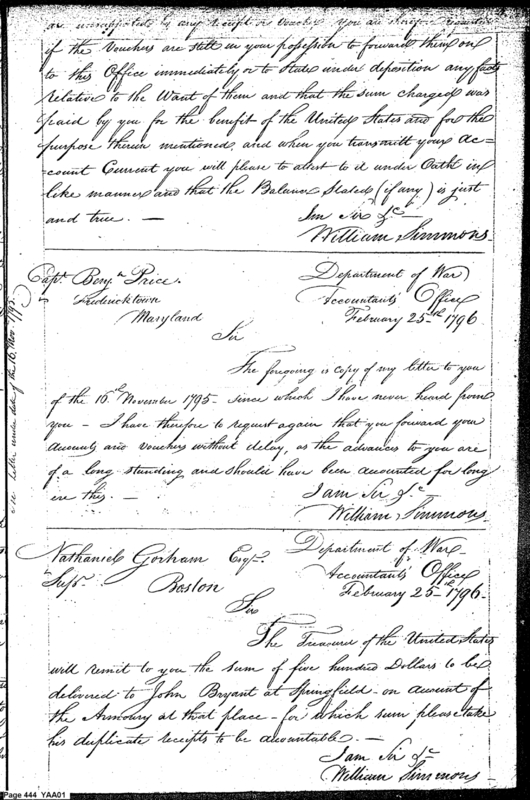 are unsupported by any receipt or voucher you are
if the Vouchers are still in your possession to forward them on
to this Office immediately or to state under deposition any facts
relative to the Want of them and that the sum charged was
paid by you for the benefit of the United States and for the
purpose therein mentioned, and when you transmitt your Ac=
count Current you will please to attest to it under Oath in
like manner and that the Balance Stated (if any) is just
and true. —
I'm Sir &c—
William Simmons.
Capt. Benjn. Price.
Fredericktown
Maryland
Department of War
Accountants Office
February 25th 1796
Sir
The foregoing is copy of my letter to you
of the 16th November 1795 - since which I have never heard from
you - I have therefore to request again that you forward your
accounts and vouchers without delay, as the advances to you are
of a long standing and should have been accounted for long
ere this. —
I am Sir &c
William Simmons
see letter under date of the 16. Nov 1795.
Nathaniel Gorham Esqr.
Supr. Boston
Department of War
Accountants Office
February 25th 1796.
Sir
The Treasurer of the United States
will remit to you the sum of five hundred Dollars to be
delivered to John Bryant at Springfield - on account of
the Armoury at that place - for which sum please take
his duplicate receipts to be accountable. —
I am Sir &c
William Simmons
Page 444 YAA01